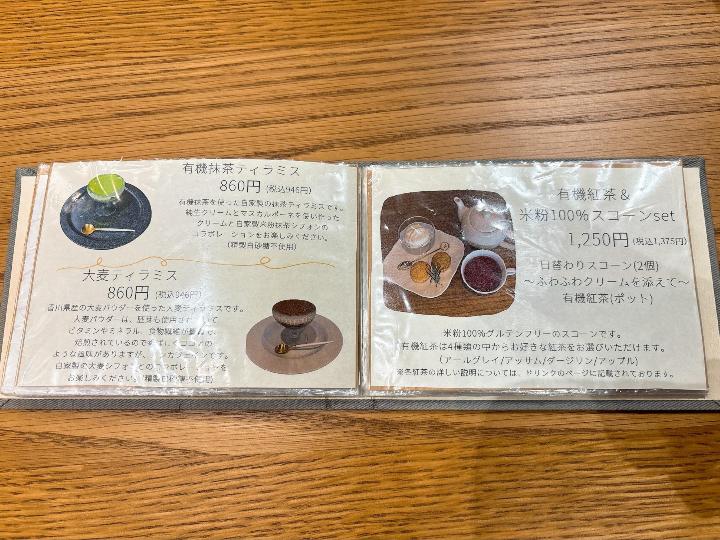 有機抹茶ティラミス
860円 (税込946円)
有機抹茶を使った自家製の抹茶ティラミスです。
純生クリームとマスカルポーネを使い作った
クリームと自家製米粉抹茶シフォンの
コラボレーションをお楽しみください。
(精製白砂糖不使用)
大麦ティラミス
860円 (税込946円)
香川県産の大麦パウダーを使った大麦ティラミスです。
大麦パウダーは、胚芽も使用
ビタミンやミネラル、食物繊維が豊富で、
焙煎されているので香ばしくココアの
ような風味がありますが、ノンカフェインです。
自家製の大麦シフォンとのコラボレーションを
お楽しみください。(精製白砂糖不使用)
有機紅茶&
米粉100%スコーンset
1,250円 (税込1,375円)
日替わりスコーン(2個)
～ふわふわクリームを添えて～
有機紅茶(ポット)
米粉100%グルテンフリーのスコーンです。
有機紅茶は4種類の中からお好きな紅茶をお選びいただけます。
(アールグレイ/アッサム/ダージリン/アップル)
※各紅茶の詳しい説明については、ドリンクのページに記載されております。